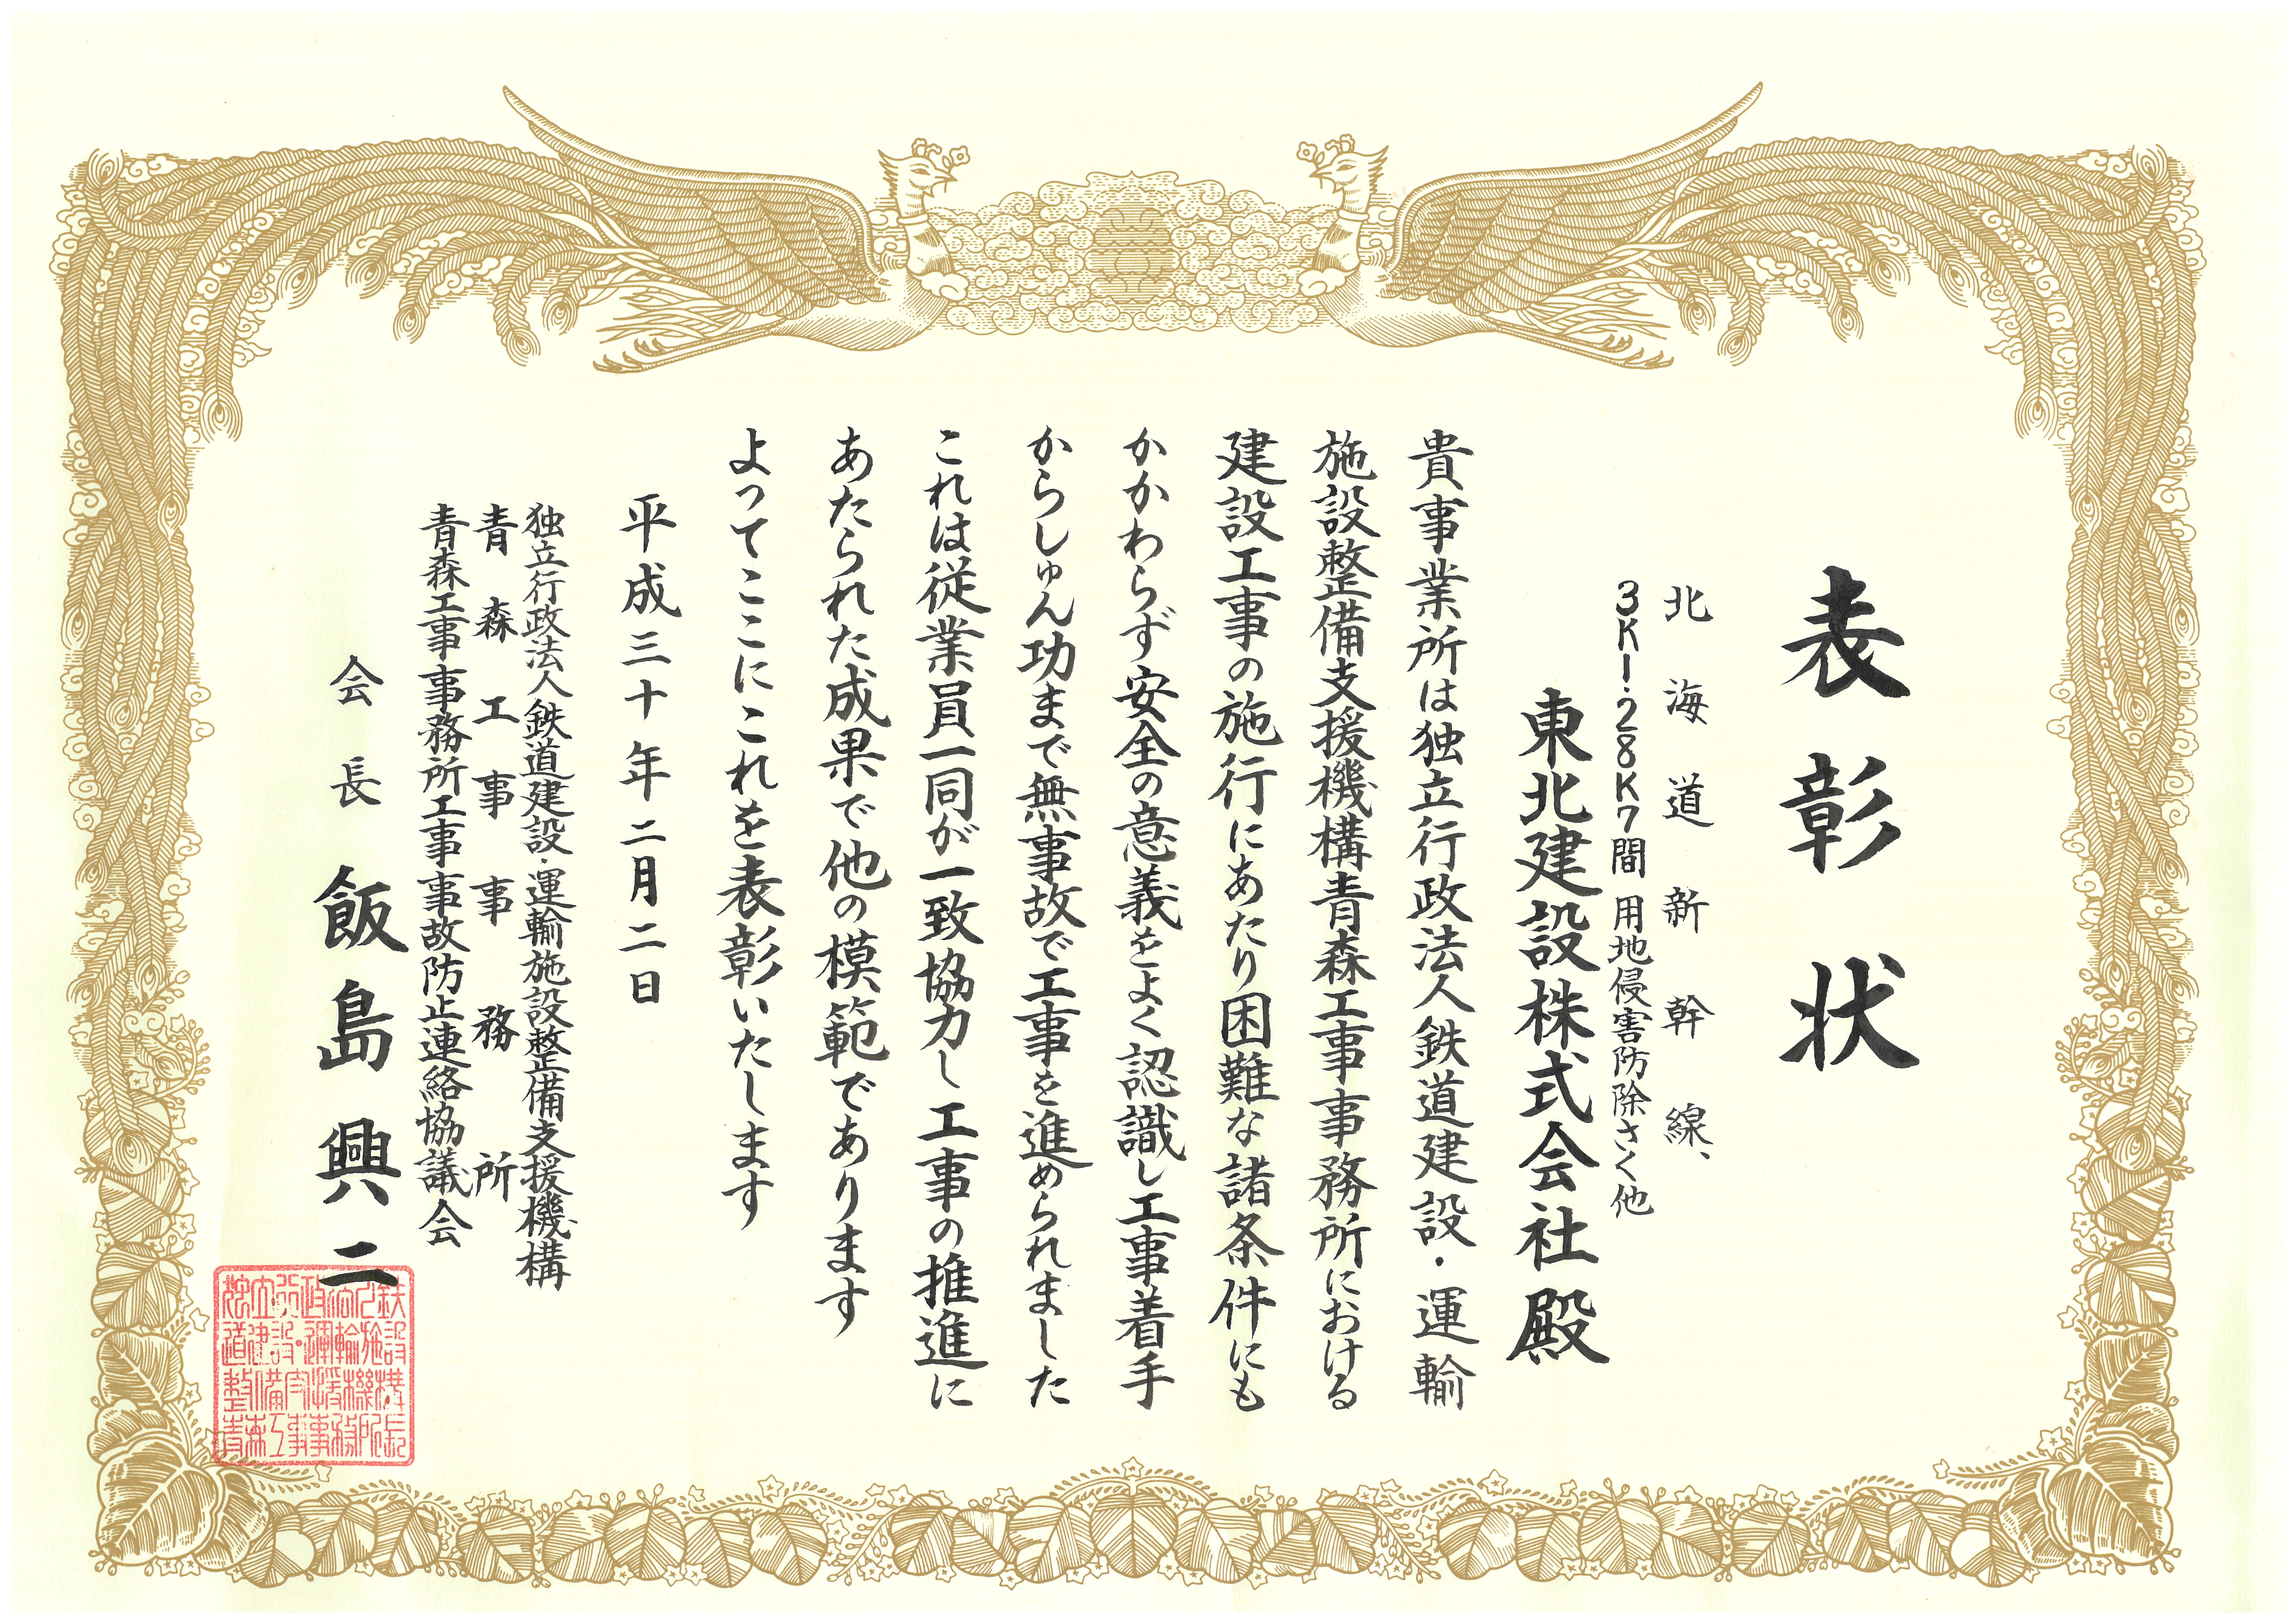 表彰状
北海道新幹線、
3K1・28K7間 用地侵害防除さく他
東北建設株式会社殿
貴事業所は独立行政法人鉄道建設・運輸
施設整備支援機構青森工事事務所における
建設工事の施行にあたり困難な諸条件にも
かかわらず安全の意義をよく認識し工事着手
からしゅん功まで無事故で工事を進められました
これは従業員一同が一致協力し工事の推進に
あたられた成果で他の模範であります
よってここにこれを表彰いたします
平成三十年二月二日
独立行政法人鉄道建設・運輸施設整備支援機構
青森工事事務所
青森工事事務所工事事故防止連絡協議会
会長 飯島興二
独立行政法人鉄
道建設・運輸施設
整備支援機構
青森工事事務所長